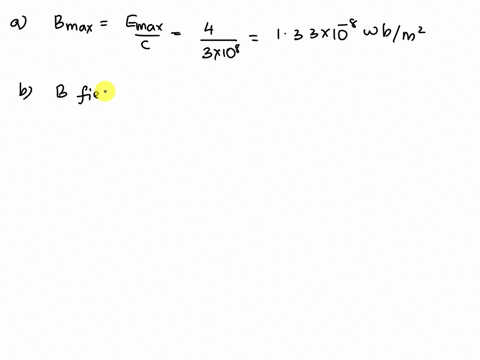 a) Bmax = Emax/c = 4/3×10⁸ = 1.33×10⁻⁸ wb/m²
b) B